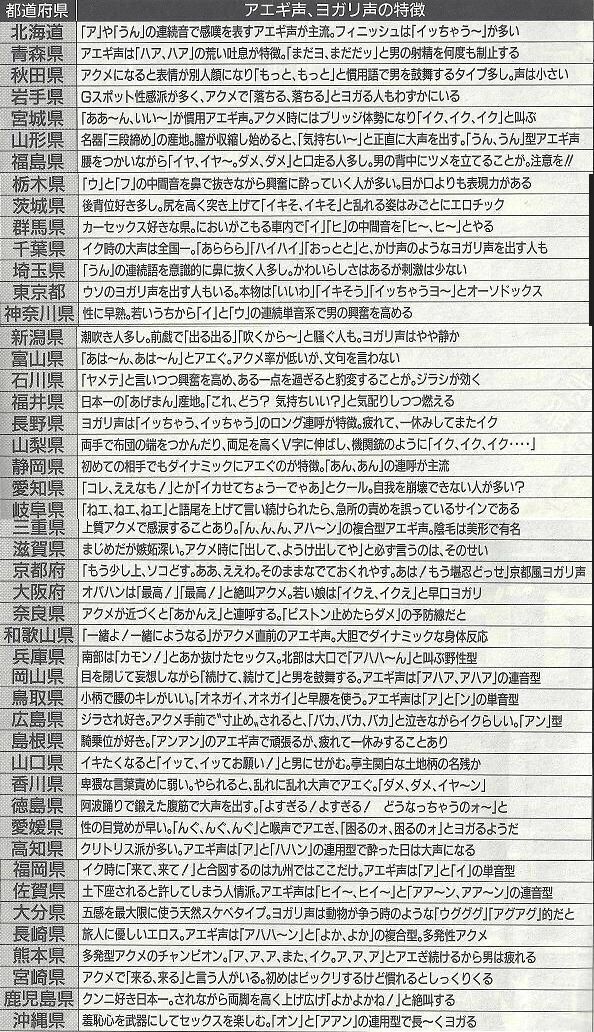 都道府県 アエギ声、ヨガリ声の特徴
北海道 「ア」や「うん」の連続音で感嘆を表すアエギ声が主流。フィニッシュは「イッちゃう〜」が多い
青森県 アエギ声は「ハア、ハア」の荒い吐息が特徴。「まだヨ、まだだッ」と男の射精を何度も制止する
秋田県 アクメになると表情が別人顔になり「もっと、もっと」と慣用語で男を鼓舞するタイプ多し。声は小さい
岩手県 Gスポット性感派が多く、アクメで「落ちる、落ちる」とヨガる人もわずかにいる
宮城県 「ああ〜ん、いい〜」が慣用アエギ声。アクメ時にはブリッジ体勢になり「イク、イク、イク」と叫ぶ
山形県 名器「三段締め」の産地。膣が収縮し始めると、「気持ちい〜」と正直に大声を出す。「うん、うん」型アエギ声
福島県 腰をつかいながら「イヤ、イヤ〜。ダメ、ダメ」と口走る人多し。男の背中にツメを立てることが。注意を!!
栃木県 「ウ」と「フ」の中間音を鼻で抜きながら興奮に酔っていく人が多い。目が口よりも表現力がある
茨城県 後背位好き多し。尻を高く突き上げて「イキそ、イキそ」と乱れる姿はみごとにエロチック
群馬県 カーセックス好きな県。においがこもる車内で「イ」「ヒ」の中間音を「ヒ〜、ヒ〜」とやる
千葉県 イク時の大声は全国一。「あららら」「ハイハイ」「おっとと」と、かけ声のようなヨガリ声を出す人も
埼玉県 「うん」の連続語を意識的に鼻に抜く人多し。かわいらしさはあるが刺激は少ない
東京都 ウソのヨガリ声を出す人もいる。本物は「いいわ」「イキそう」「イッちゃうヨ〜」とオーソドックス
神奈川県 性に早熟。若いうちから「イ」と「ウ」の連続単音系で男の興奮を高める
新潟県 潮吹き人多し。前戯で「出る出る」「吹くから〜」と騒ぐ人も。ヨガリ声はやや静か
富山県 「あは〜ん、あは〜ん」とアエぐ。アクメ率が低いが、文句を言わない
石川県 「ヤメテ」と言いつつ興奮を高め、ある一点を過ぎると豹変することが。ジラシが効く
福井県 日本一の「あげまん」産地。「これ、どう? 気持ちいい?」と気配りしつつ燃える
長野県 ヨガリ声は「イッちゃう、イッちゃう」のロング連呼が特徴。疲れて、一休みしてまたイク
山梨県 両手で布団の端をつかんだり、両足を高くV字に伸ばし、機関銃のように「イク、イク、イク・・・・」
静岡県 初めての相手でもダイナミックにアエぐのが特徴。「あん、あん」の連呼が主流
愛知県 「コレ、ええなも!」とか「イカせてちょうーでゃあ」とクール。自我を崩壊できない人が多い?
岐阜県 「ねエ、ねエ、ねエ」と語尾を上げて言い続けられたら、急所の責めを誤っているサインである
三重県 上質アクメで感涙することあり。「ん、ん、ん、アハ〜ン」の複合型アエギ声。陰毛は美形で有名
滋賀県 まじめだが嫉妬深い。アクメ時に「出して、ようけ出してや」と必ず言うのは、そのせい
京都府 「もう少し上、ソコどす。ああ、ええわ。そのままなでておくれやす。あは!もう堪忍どっせ」京都風ヨガリ声
大阪府 オバハンは「最高!」「最高!」と絶叫アクメ。若い娘は「イクえ、イクえ」と早口ヨガリ
奈良県 アクメが近づくと「あかんえ」と連呼する。「ピストン止めたらダメ」の予防線だと
和歌山県 「一緒よ!一緒にようなる」がアクメ直前のアエギ声。大胆でダイナミックな身体反応
兵庫県 南部は「カモン!」とあか抜けたセックス。北部は大口で「アハハ〜ん」と叫ぶ野性型
岡山県 目を閉じて妄想しながら「続けて、続けて」と男を鼓舞する。アエギ声は「アハア、アハア」の連音型
鳥取県 小柄で腰のキレがいい。「オネガイ、オネガイ」と早腰を使う。アエギ声は「ア」と「ン」の単音型
広島県 ジラされ好き。アクメ手前で〝寸止め〟されると、「バカ、バカ、バカ」と泣きながらイクらしい。「アン」型
島根県 騎乗位が好き。「アンアン」のアエギ声で頑張るが、疲れて一休みすることあり
山口県 イキたくなると「イッて、イッてお願い!」と男にせがむ。亭主関白な土地柄の名残か
香川県 卑猥な言葉責めに弱い。やられると、乱れに乱れ大声でアエぐ。「ダメ、ダメ、イヤ〜ン」
徳島県 阿波踊りで鍛えた腹筋で大声を出す。「よすぎる!よすぎる! どうなっちゃうのォ〜」と
愛媛県 性の目覚めが早い。「んぐ、んぐ、んぐ」と喉声でアエぎ、「困るのォ、困るのォ」とヨガるようだ
高知県 クリトリス派が多い。アエギ声は「ア」と「ハハン」の連用型で酔った日は大声になる
福岡県 イク時に「来て、来て!」と合図するのは九州ではここだけ。アエギ声は「ア」と「イ」の単音型
佐賀県 土下座されると許してしまう人情派。アエギ声は「ヒイ〜、ヒイ〜」と「アア〜ン、アア〜ン」の連音型
大分県 五感を最大限に使う天然スケベタイプ。ヨガリ声は動物が争う時のような「ウググ」「アグアグ」的だと
長崎県 旅人に優しいエロス。アエギ声は「アハハ〜ン」と「よか、よか」の複合型。多発性アクメ
熊本県 多発型アクメのチャンピオン。「ア、ア、ア、また、イク。ア、ア、ア」とアエぎ続けるから男は疲れる
宮崎県 アクメで「来る、来る」と言う人がいる。初めはビックリするけど慣れるとしっくりくる
鹿児島県 クンニ好き日本一。されながら両脚を高く上げ広げ「よかよかね!」と絶叫する
沖縄県 羞恥心を武器にしてセックスを楽しむ。「オン」と「アアン」の連用型で長〜くヨガる